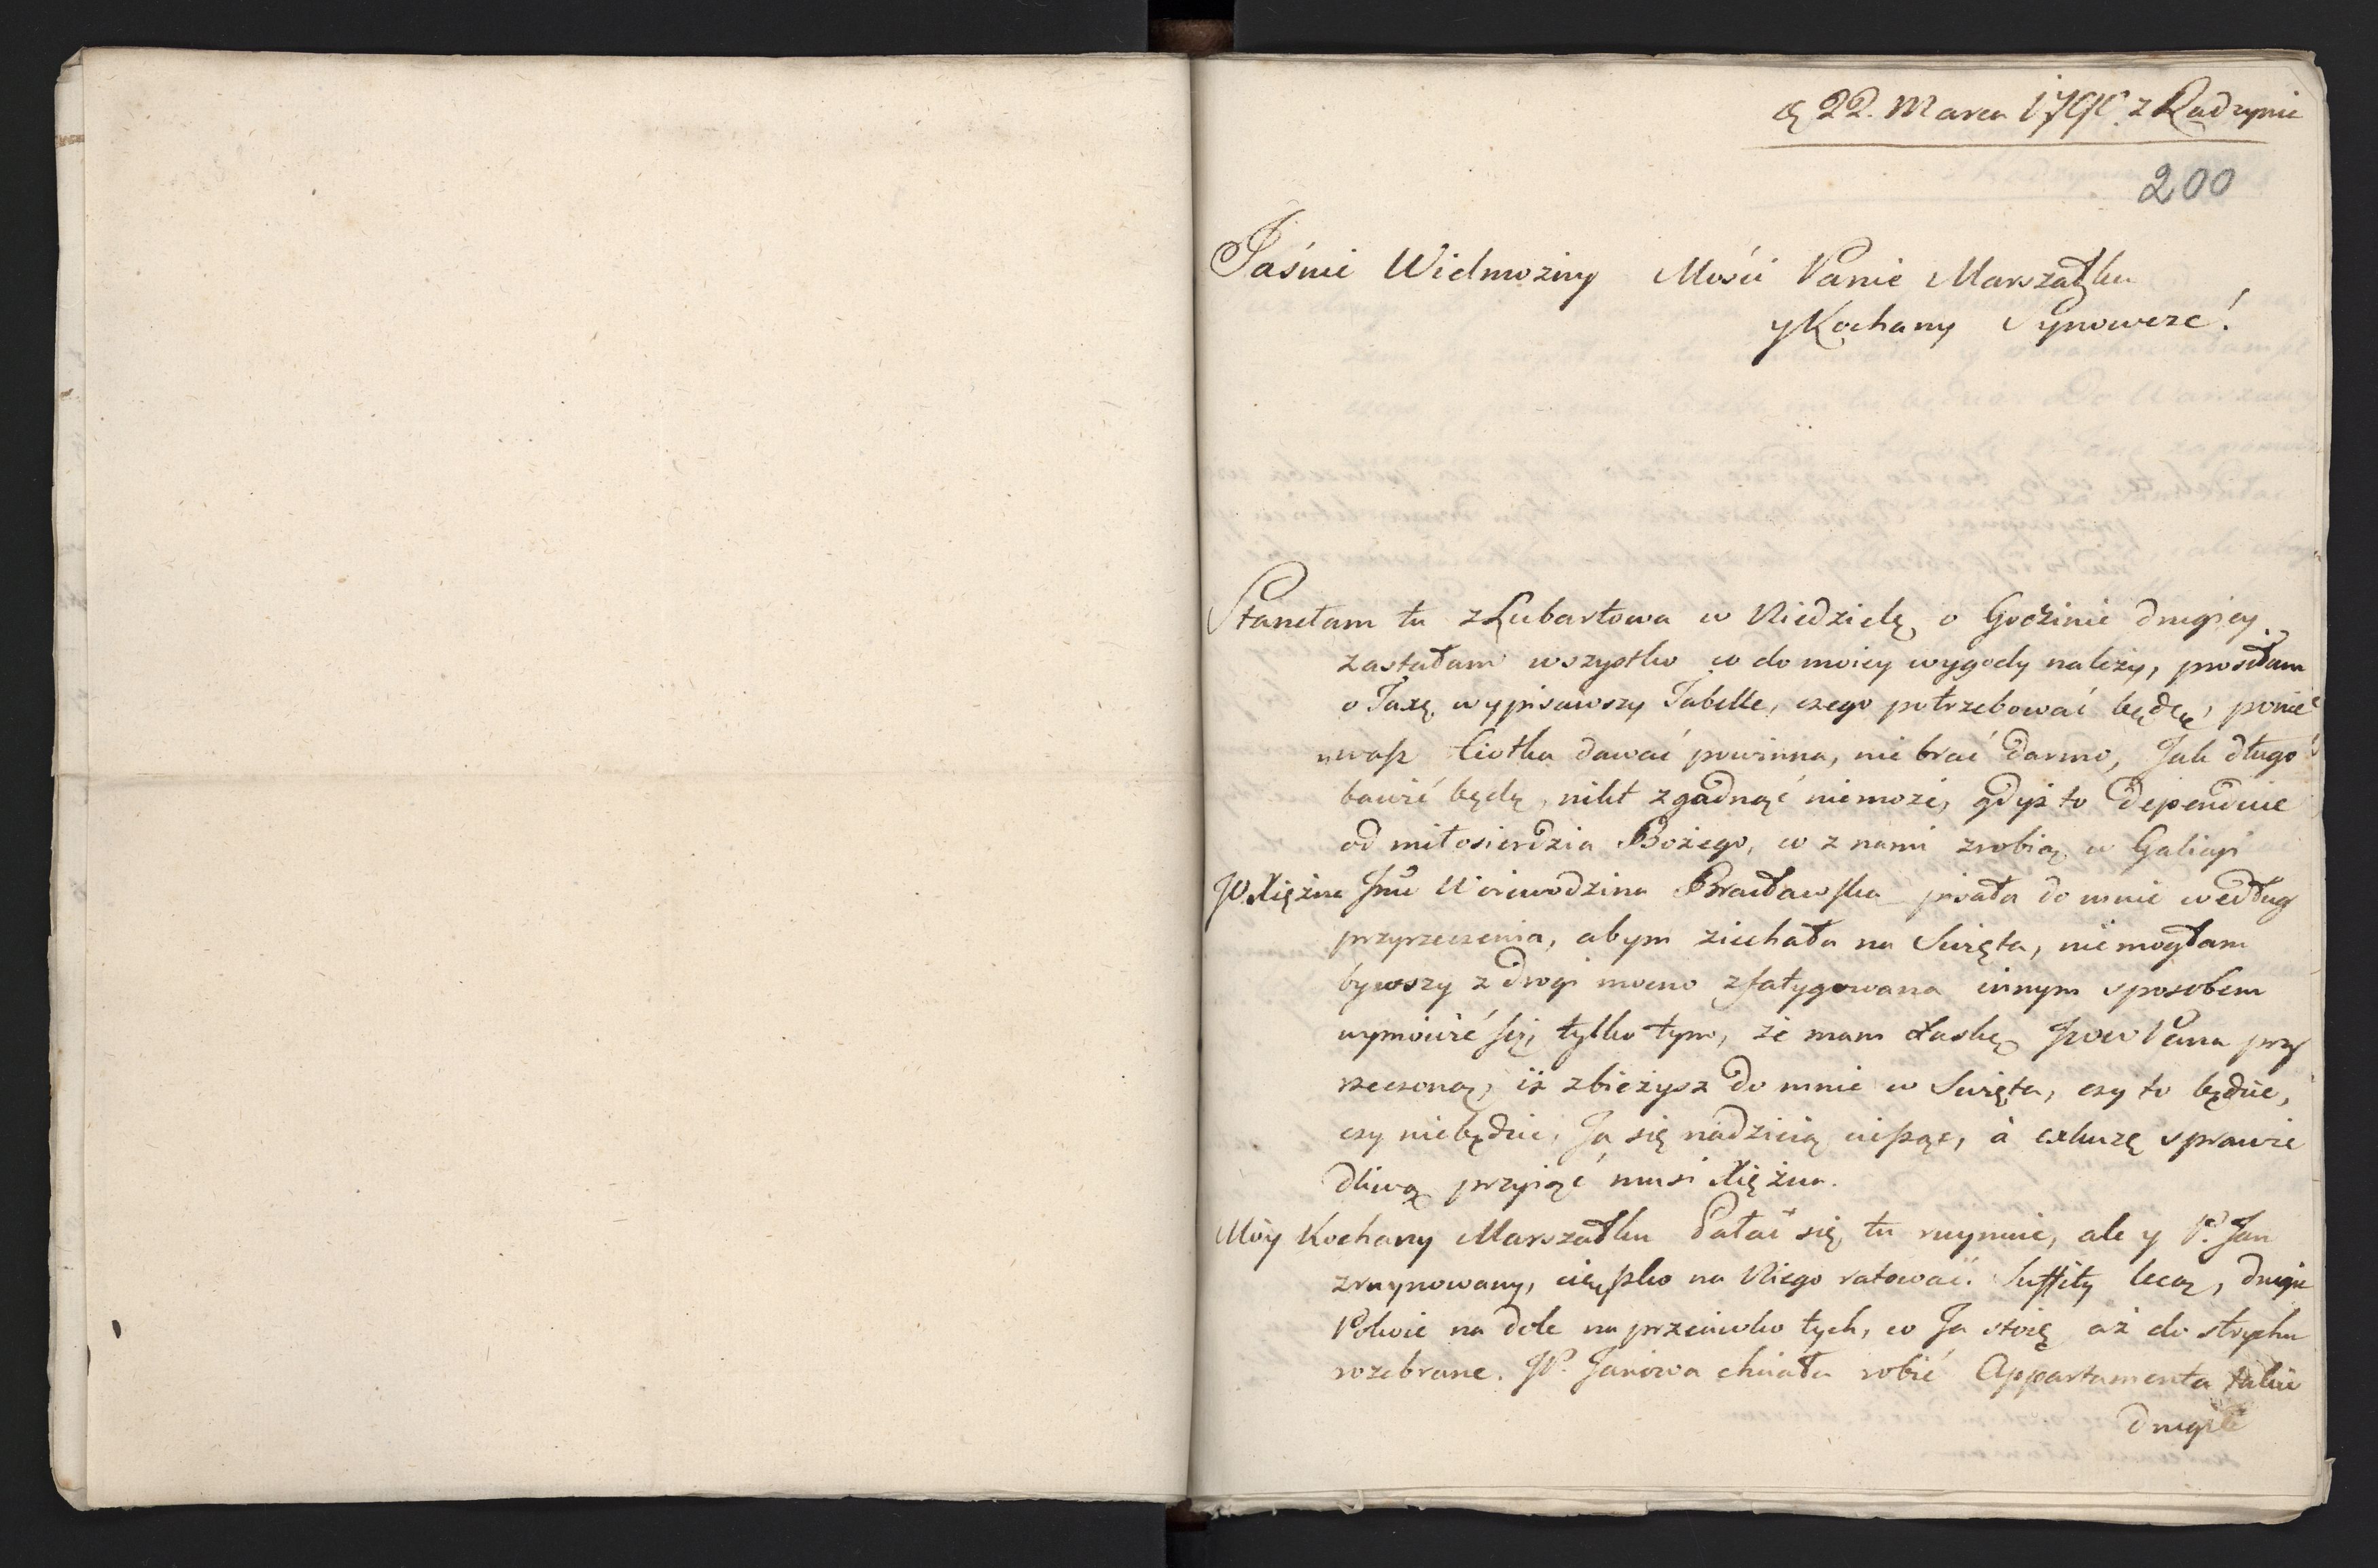 22. Marca 1790. z Radzynia
200
Jaśnie Wielmożny Mości Panie Marszałku
y Kochany Synowcze!
Stanełam tu z Lubartowa w Niedzielę o Godzinie drugiey
zastałam wszystko co do moiey wygody należy, prosiłam
o Taxę wypisawszy Tabelle, czego potrzebować będęę, ponie
waſz Ciotka dawać powinna, nie brać darmo, Jak długo
bawić będę, nikt zgadnąć niemoże, gdyż to dependuie
od miłosierdzia Bożego, co z nami zrobią w Galicyi
Xiężna Jmć Woiewodzina Bracławſka pisała do mnie według
przyrzeczenia, abym ziechała na Swięta, nie mogłam
bywszy z drogi mocno zfatygowana innym sposobem
wymówić ſię, tylko tym, że mam Łaskę Pana przy
rzeczoną, iż zbieżysz do mnie w Swięta, czy to będzie,
czy niebędzie, Ja się nadzieią cieſzę, à exkuzę sprawie
dliwą przyiąć musi Xiężna.
Móy Kochany Marszałku Pałac się tu ruynuie, ale y P. Jan
zruynowany, cięſzko na Niego ratować. Suffity lecą, drugie
Pokoie na dole na przeciwko tych, co Ja stoię aż do strychu
rozebrane. JP. Janowa chciała robić Appartamenta takie
drugie